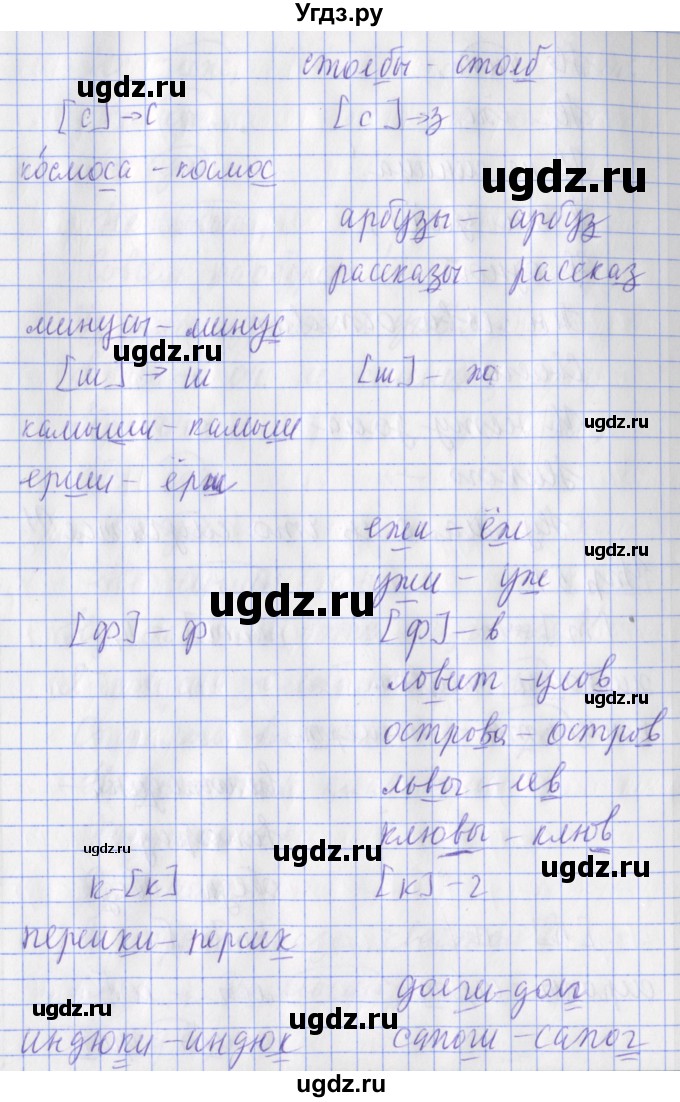 Угдз.ру
столбы - столб
ugdz.ru
[с]→с [с]→з
космоса - космос
ugdz.ru
арбузы - арбуз
рассказы - рассказ
минусы - минус
ugdz.ru
[ш]→ш [ш] - ж
камыши - камыши
ugdz.ru
ерши - ёрш
ежи - ёж
ugdz.ru
ужи - уж
ugdz.ru
[ф] - ф [ф] - в
ловит - улов
ugdz.ru
острова - остров
львы - лев
клювы - клюв
ugdz.ru ugdz.ru
ugdz.ru
к - [к] [к] - г
персики - персик
долги - долг
ugdz.ru ugdz.ru
индюки - индюк сапоги - сапог
ugdz.ru
ugdz.ru